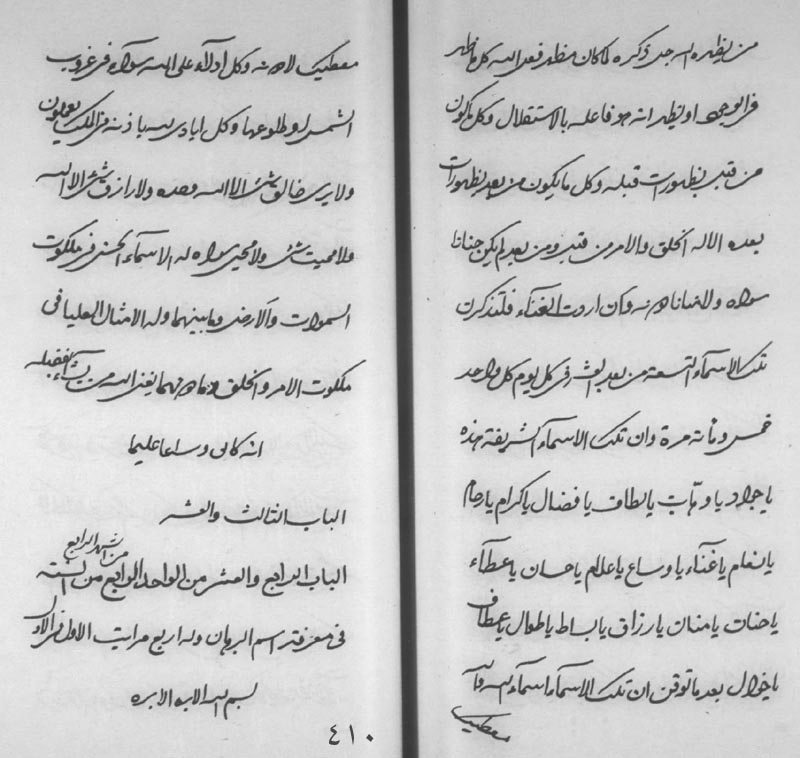 من يظهره الله جل ذكره كما كان مظهر فعل الله كل ما ظهر
في الوجود او يظهر انه هو فاعله بالاستقلال وكل ما يكون
من قبل بظهورات قبله وكل ما يكون من بعد بظهورات
بعده الا له الخلق والامر من قبل ومن بعد لم يكن
سواه ولا وان اردت الغناء فلتذكرن
تلك الاسماء التسعة من بعد العشر في كل يوم كل واحد
خمس ومأته مرة وان تلك الاسماء الشريفة هذه
يا جواد يا وهاب يا لطاف يا فضال يا كرام يا رحام
يا نعام يا غناء يا وساع يا علام يا حسان يا عطاء
يا حنان يا منان يا رزاق يا بساط يا طوال يا عطاف
يا خوال بعد ما توقن ان تلك الاسماء اسماء لله والله
معطيك
معطيك وكل ادلاء على الله سواء في غروب
الشمس او طلوعها وكل ايادي لله باذنه في الملك يعملون
ولا يرى خالق شئ الا الله وحده ولا رازق شئ الا الله
ولا مميت شئ ولا محيي سواه له الاسماء الحسنى في ملكوت
السموات والارض وما بينهما وله الامثال العليا في
ملكوت الامر والخلق وما دونهما يغني الله من يشاء بفضله
انه كان وساعا عليما
الباب الثالث والعشر
من الشهر الرابع
الباب الرابع والعشر من الواحد الرابع من السنه
في معرفة اسم البرهان وله اربع مراتب الاول في الاول
بسم الله الابره الابره
٤١٠